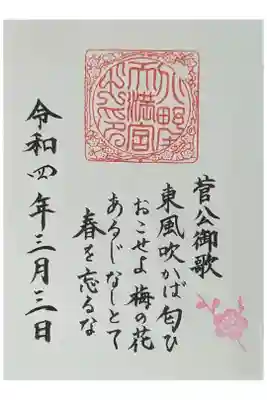 菅公御歌
東風吹かば匂ひ
おこせよ梅の花
あるじなしとて
春を忘るな
令和四年三月三日